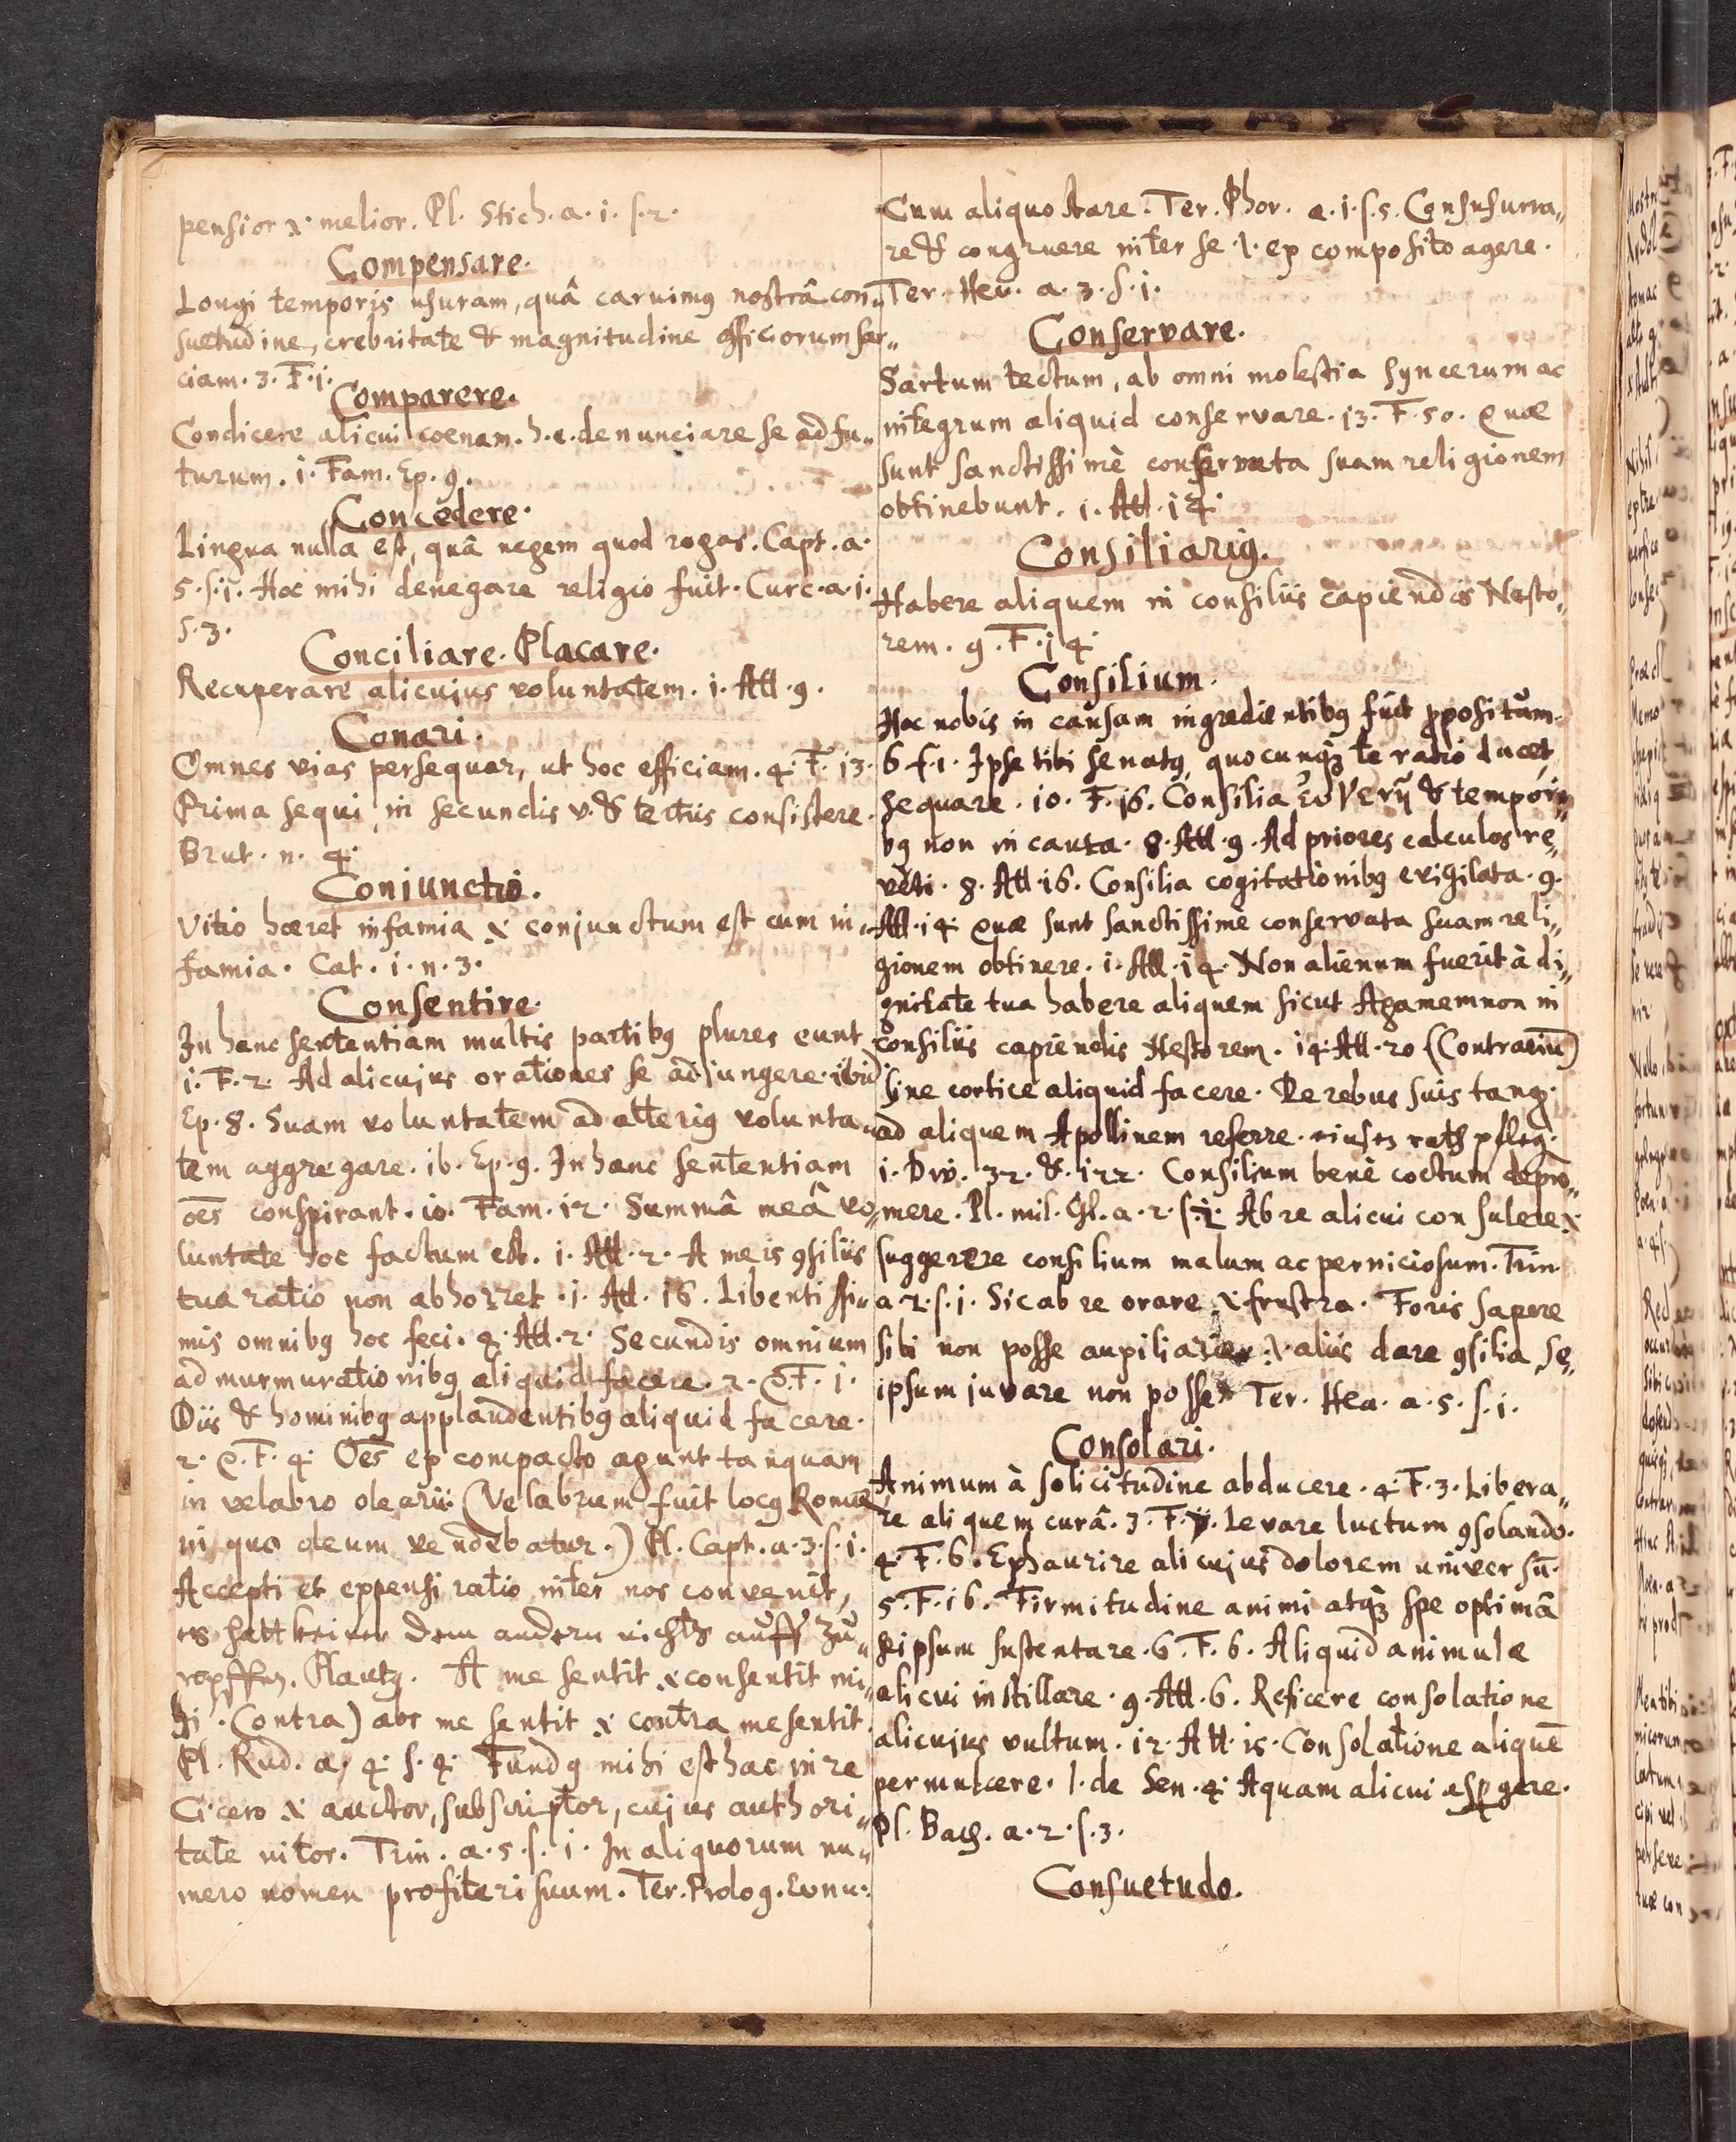 pensior x. melior. Pl. Stich. a. i. s. 2.
Compensare.
Longi temporis usuram, quâ caruimus nostrâ con„
suetudine, crebritate & magnitudine officiorum sar„
ciam. 3. F. i.
Comparere.
Condicere alicui coenam. h. e. denunciare se ad fu„
turum. i. Fam. Ep. 9.
Concedere.
Lingua nulla est, quâ negem quod rogas. Capt. a.
5. s. i. Hoc mihi denegare religio fuit. Curc. a. i.
s. 3.
Conciliare. Placare.
Recuperare alicujus voluntatem. i. Att. 9.
Conari.
Omnes vias persequar, ut hoc efficiam. 4. F. 13.
Prima sequi, in secundis v. & tertiis consistere.
Brut. n. 4.
Conjunctio.
Vitio hæret infamia x conjunctum est cum in„
famia. Cat. i. n. 3.
Consentire.
In hanc sententiam multis partibus plures eunt
i. F. 2. Ad alicujus orationes se adjungere. ibid.
Ep. 8. Suam voluntatem ad alterius volunta„
tem aggregare. ib. Ep. 9. In hanc sententiam
oēs conspirant. io. Fam. 12. Summâ meâ vo„
luntate hoc factum est. i. Att. 2. A meis 9siliis
tua ratio non abhorret. i. Att. 16. Libentissi„
mis omnibus hoc feci. 4. Att. 2. Secundis omnium
admurmurationibus aliquid facere. 2. Q. F. i.
Diis & hominibus applaudentibus aliquid facere.
2. Q. F. 4. Oēs ex compacto agunt tanquam
in velabro olearii. (Velabrum fuit locus Romæ
in quo oleum vendebatur.) Pl. Capt. a. 3. s. i.
Accepti et expensi ratio inter nos convenit,
es hatt keiner dem andern nichts auff zu„
ropffen. Plautus. A me sentit x consentit mi„
hi. (Contra) abs me sentit x contra me sentit.
Pl. Rud. a. 4. s. 4. Fundus mihi est hac in re
Cicero x auctor, subscriptor, cujus authori„
tate nitor. Trin. a. 5. s. i. In aliquorum nu„
mero nomen profiteri suum. Ter. Prolog. Eunu.
Cum aliquo stare. Ter. Phor. a. i. s. 5. Consusurra„
re & congruere inter se. l. ex composito agere.
Ter. Heu. a. 3. s. i.
Conservare.
Sartum tectum, ab omni molestia syncerum ac
integrum aliquid conservare. 13. F. 50. Quæ
sunt sanctissimè conservata suam religionem
obtinebunt. i. Att. 14.
Consiliarius.
Habere aliquem in consiliis capiendis Nesto„
rem. 9. F. 14.
Consilium.
Hoc nobis in causam ingredientibus fuit ppositum.
6 f. 1. Ipse tibi senatus, quocunqz te ratio ducet,
sequare. io. F. 16. Consilia & tempori„
bus non incauta. 8. Att. 9. Ad priores calculos re„
verti. 8. Att. 16. Consilia cogitationibus evigilata. 9.
Att. 14. Quæ sunt sanctissimè conservata suam reli„
gionem obtinere. i. Att. 14. Non alienum fuerit à di„
gnitate tua habere aliquem sicut Agamemnon in
consiliis capiendis Nestorem. 14. Att. 20 (Contrarium)
sine cortice aliquid facere. De rebus suis tanq.
ad aliquem Apollinem referre. raths pfleg.
i. Div. 32. & 122. Consilium benè coctum depro„
mere. Pl. mil. Gl. a. 2. s. 2. Ab re alicui consulere x
suggerere consilium malum ac perniciosum. Trin.
a. 2. s. i. Sic ab re orare x frustra. Foris sapere
sibi non posse auxiliarier x aliis dare 9silia, se„
ipsum juvare non posse. Ter. Hea. a. 5. s. i.
Consolari.
Animum à solicitudine abducere. 4. F. 3. Libera„
re aliquem curâ. 3. F. Levare luctum 9solando.
4. F. 6. Exhaurire alicujus dolorem universū.
5. F. 16. Firmitudine animi atqz spe optimâ
seipsum sustentare. 6. F. 6. Aliquid animulæ
alicui instillare. 9. Att. 6. Reficere consolatione
alicujus vultum. 12. Att. 15. Consolatione aliquē
permulcere. l. de Sen. 4. Aquam alicui aspgere.
Pl. Bach. a. 2. s. 3.
Consuetudo.